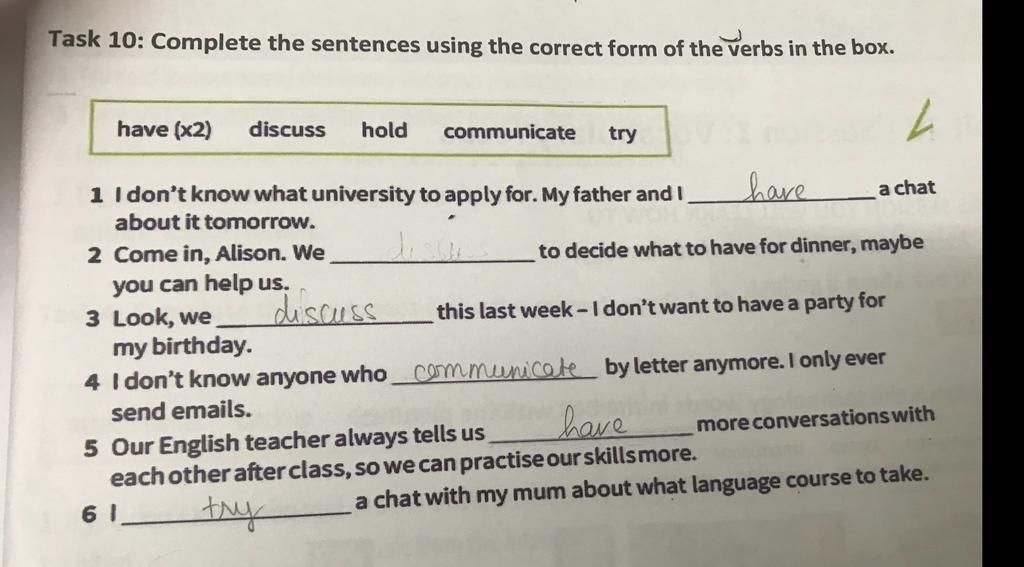 Task 10: Complete the sentences using the correct form of the verbs in the box.
have (x2) discuss hold communicate try
1 I don't know what university to apply for. My father and I have a chat
about it tomorrow.
2 Come in, Alison. We discuss to decide what to have for dinner, maybe
you can help us.
3 Look, we discuss this last week – I don't want to have a party for
my birthday.
4 I don't know anyone who communicate by letter anymore. I only ever
send emails.
5 Our English teacher always tells us have more conversations with
each other after class, so we can practise our skills more.
6 I try a chat with my mum about what language course to take.